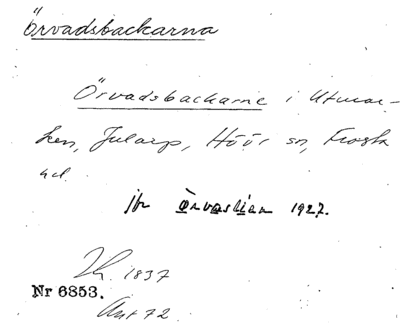 Örvadsbackarna
Örvadsbackarne i Utmar-
ken, Jularp, Höör sn, Frosta
hd.
jfr Örvaslian 1927.
1837
Nr 6853.
Ant 72